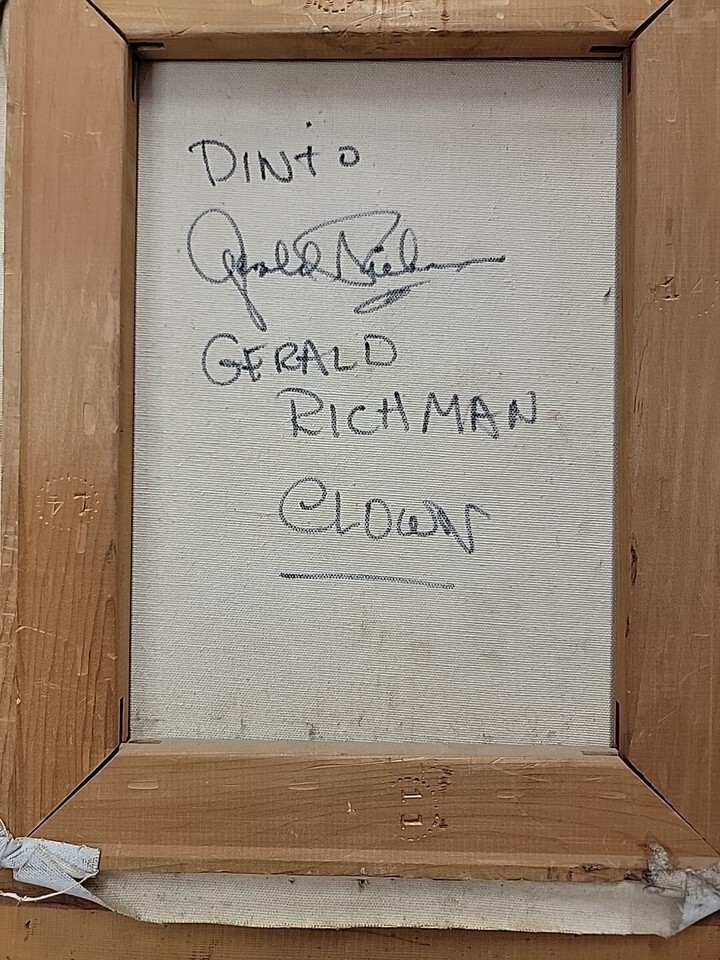 DINTO
Gerald Richman
GERALD
RICHMAN
CLOWN
14
14
11